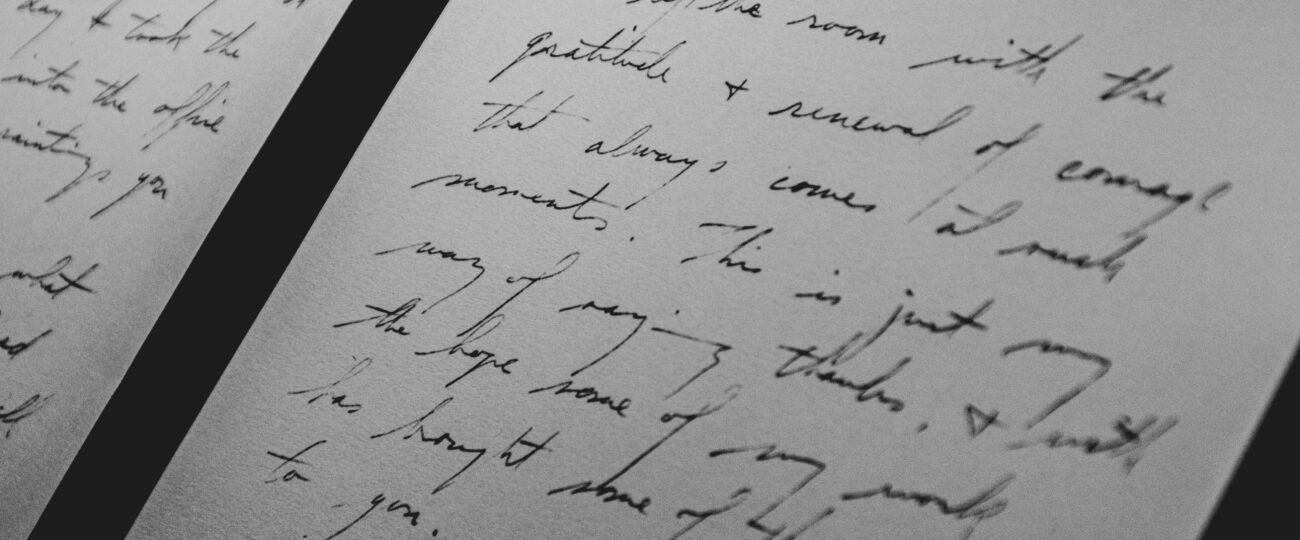 day & took the
into the office
you
what
the room with the
gratitude & renewal of courage
that always comes at such
moments. This is just my
way of saying thanks, & with
the hope some of my work
has brought some of
to you.